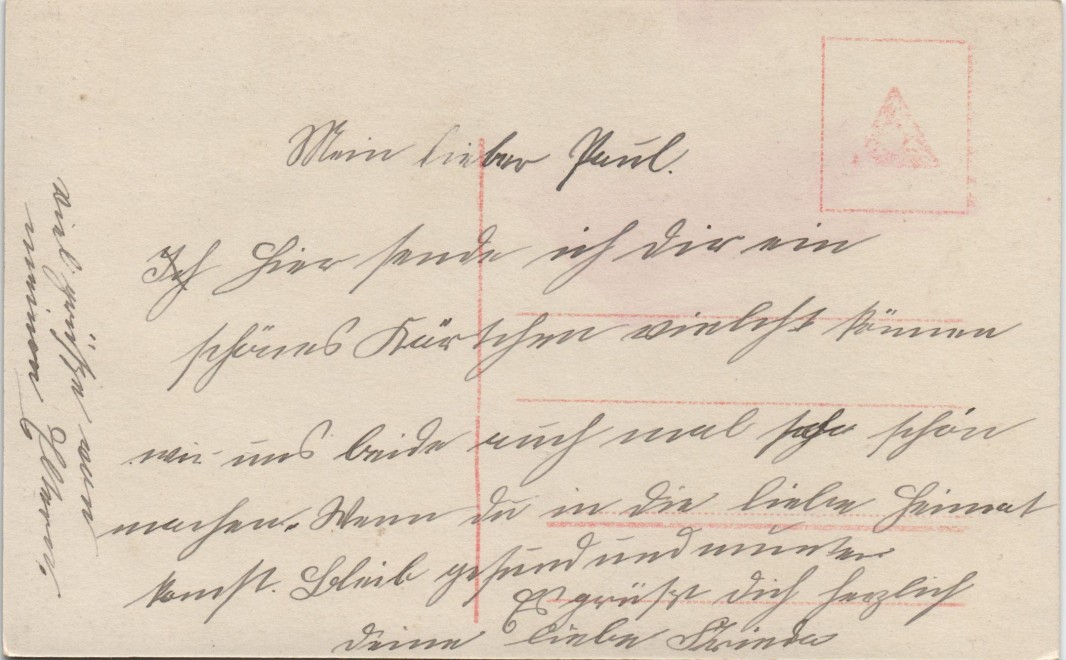 Mein lieber Paul.
Ich Hier sende ich dir ein
schönes Kärtchen vielcht können
wir uns beide auch mal so schön
machen. Wenn du in die liebe Heimat
komst. Bleib gesund und munter
Es grüßt dich herzlich
deine liebe Frieda
Viel grüße von
meinen Eltern.